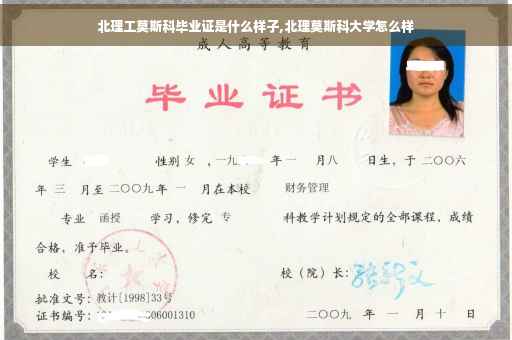 北理工莫斯科毕业证是什么样子,北理莫斯科大学怎么样
成人高等教育
毕业证书
学生 性别 女 ，一九 年 一 月八 日生，于 二〇〇六
年 三 月至 二〇〇九 年 一 月在本校 财务管理
专业 函授 学习，修完 专 科教学计划规定的全部课程，成绩
合格，准予毕业。
校 名： 校（院）长：
批准文号：教计[1998]33号
证书编号： 06001310 二〇〇九 年 一 月 十 日